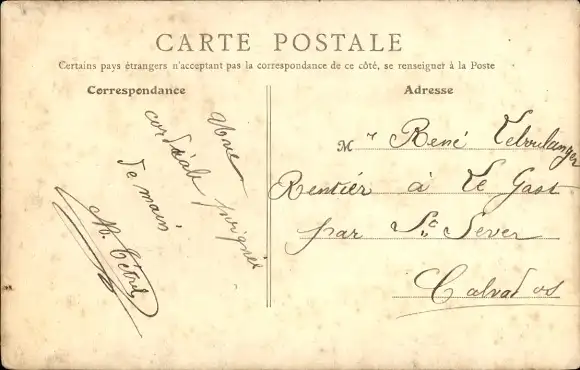 CARTE POSTALE
Certains pays étrangers n'acceptant pas la correspondance de ce côté, se renseigner à la Poste
Correspondance
Une
cordiale poignée
de main
M.
Adresse
Mr René Leboulanger
Rentier à Le Gast
par St Sever
Calvados